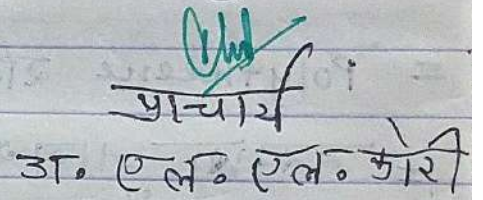 प्राचार्य
डा. एल. एल. कोरी